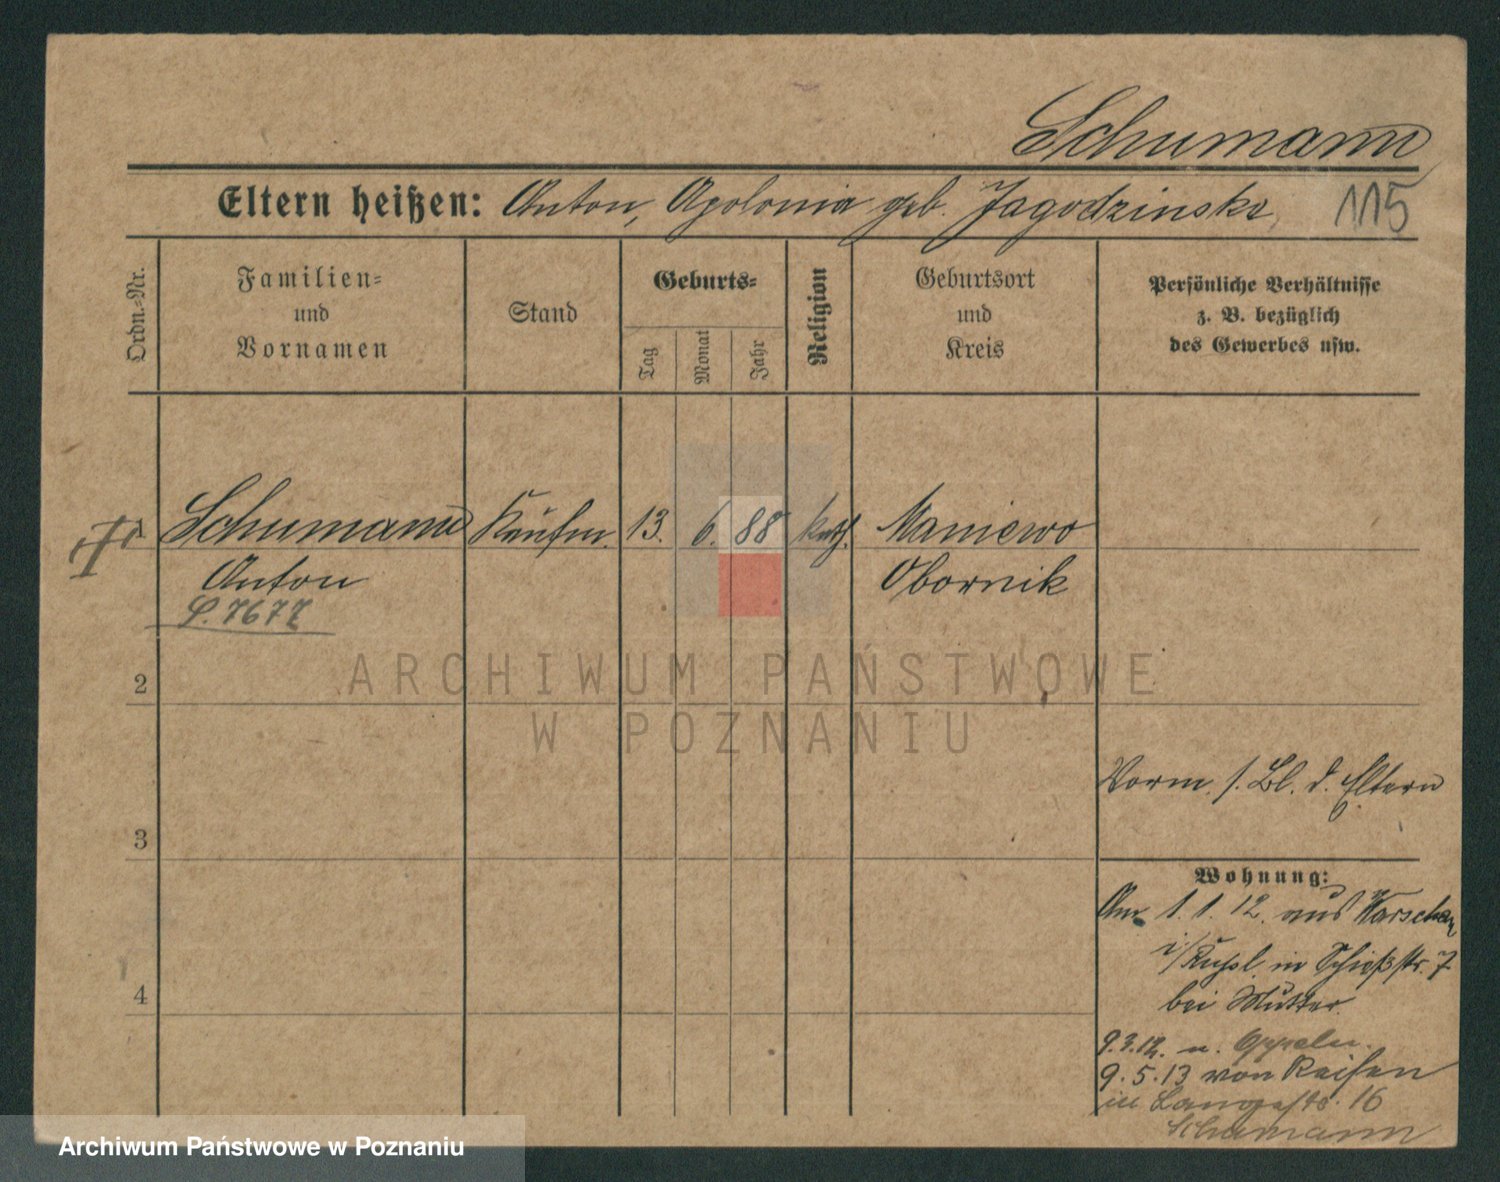 Schumann
Eltern heißen: Anton, Apolonia geb. Jagodzinska
115
Ordn.-Nr.
Familien-
und
Vornamen
Stand
Geburts-
Tag
Monat
Jahr
Religion
Geburtsort
und
Kreis
Persönliche Verhältnisse
z. B. bezüglich
des Gewerbes usw.
1
Schumann Kaufm. 13. 6. 88 kath. Maniewo
Anton Obornik
P. 7677
2
ARCHIWUM PAŃSTWOWE
W POZNANIU
Vorm. s. Bl. d. Eltern
3
Wohnung:
Am 1. 1. 12. aus Warschau
i/Rußl. in Schießstr. 7
bei Mutter.
4
9.3.12. n. Oppeln.
9.5.13 von Reisen
in Langestr. 16
Schumann
Archiwum Państwowe w Poznaniu